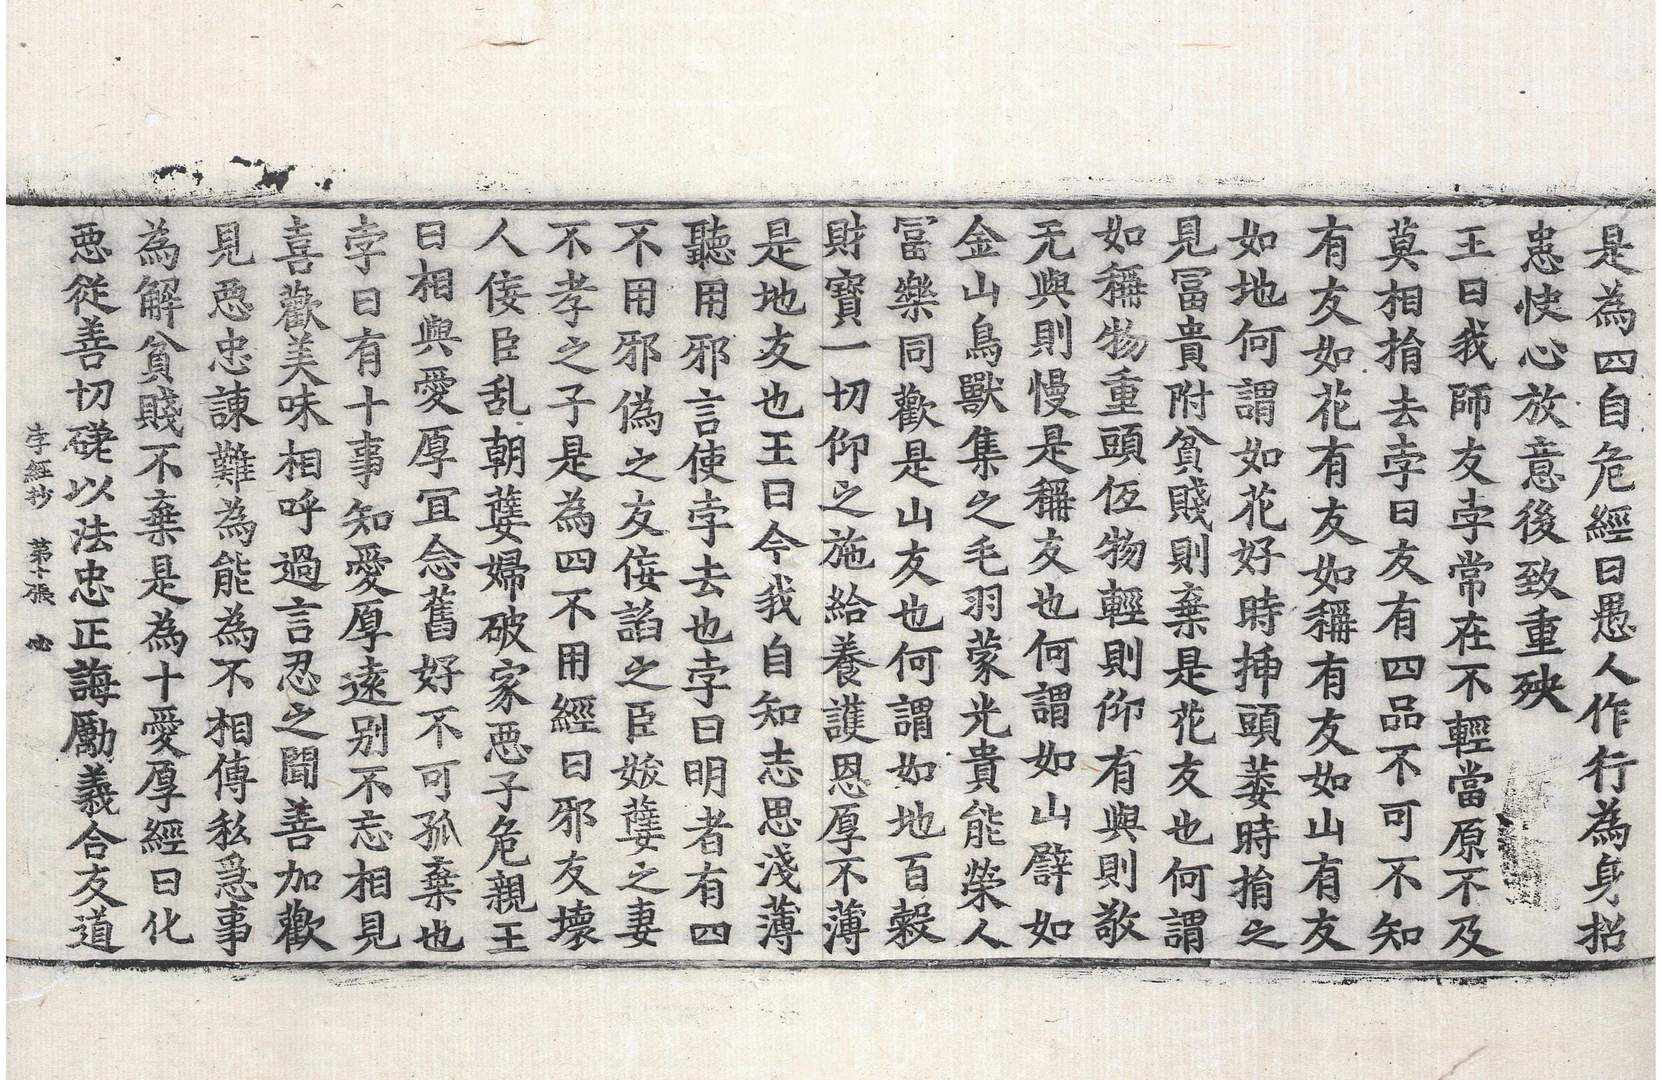 是為四自危經曰愚人作行為身招
患快心放意後致重殃
王曰我師友孛常在不輕當原不及
莫相捐去孛曰友有四品不可不知
有友如花有友如稱有友如山有友
如地何謂如花好時揷頭萎時捐之
見冨貴附貧賤則棄是花友也何謂
如稱物重頭仾物輕則仰有與則敬
无與則慢是稱友也何謂如山譬如
金山鳥獸集之毛羽蒙光貴能榮人
冨樂同歡是山友也何謂如地百穀
財寶一切仰之施給養護恩厚不薄
是地友也王曰今我自知志思淺薄
聽用邪言使孛去也孛曰明者有四
不用邪偽之友侫諂之臣妭㜸之妻
不孝之子是為四不用經曰邪友壞
人侫臣乱朝㜸婦破家惡子危親王
曰相與愛厚冝念舊好不可孤棄也
孛曰有十事知愛厚遠别不忘相見
喜歡美味相呼過言忍之聞善加歡
見惡忠諫難為能為不相傳私急事
為解貧賤不棄是為十愛厚經曰化
惡從善切磋以法忠正誨勵義合友道
孛經抄 第十張